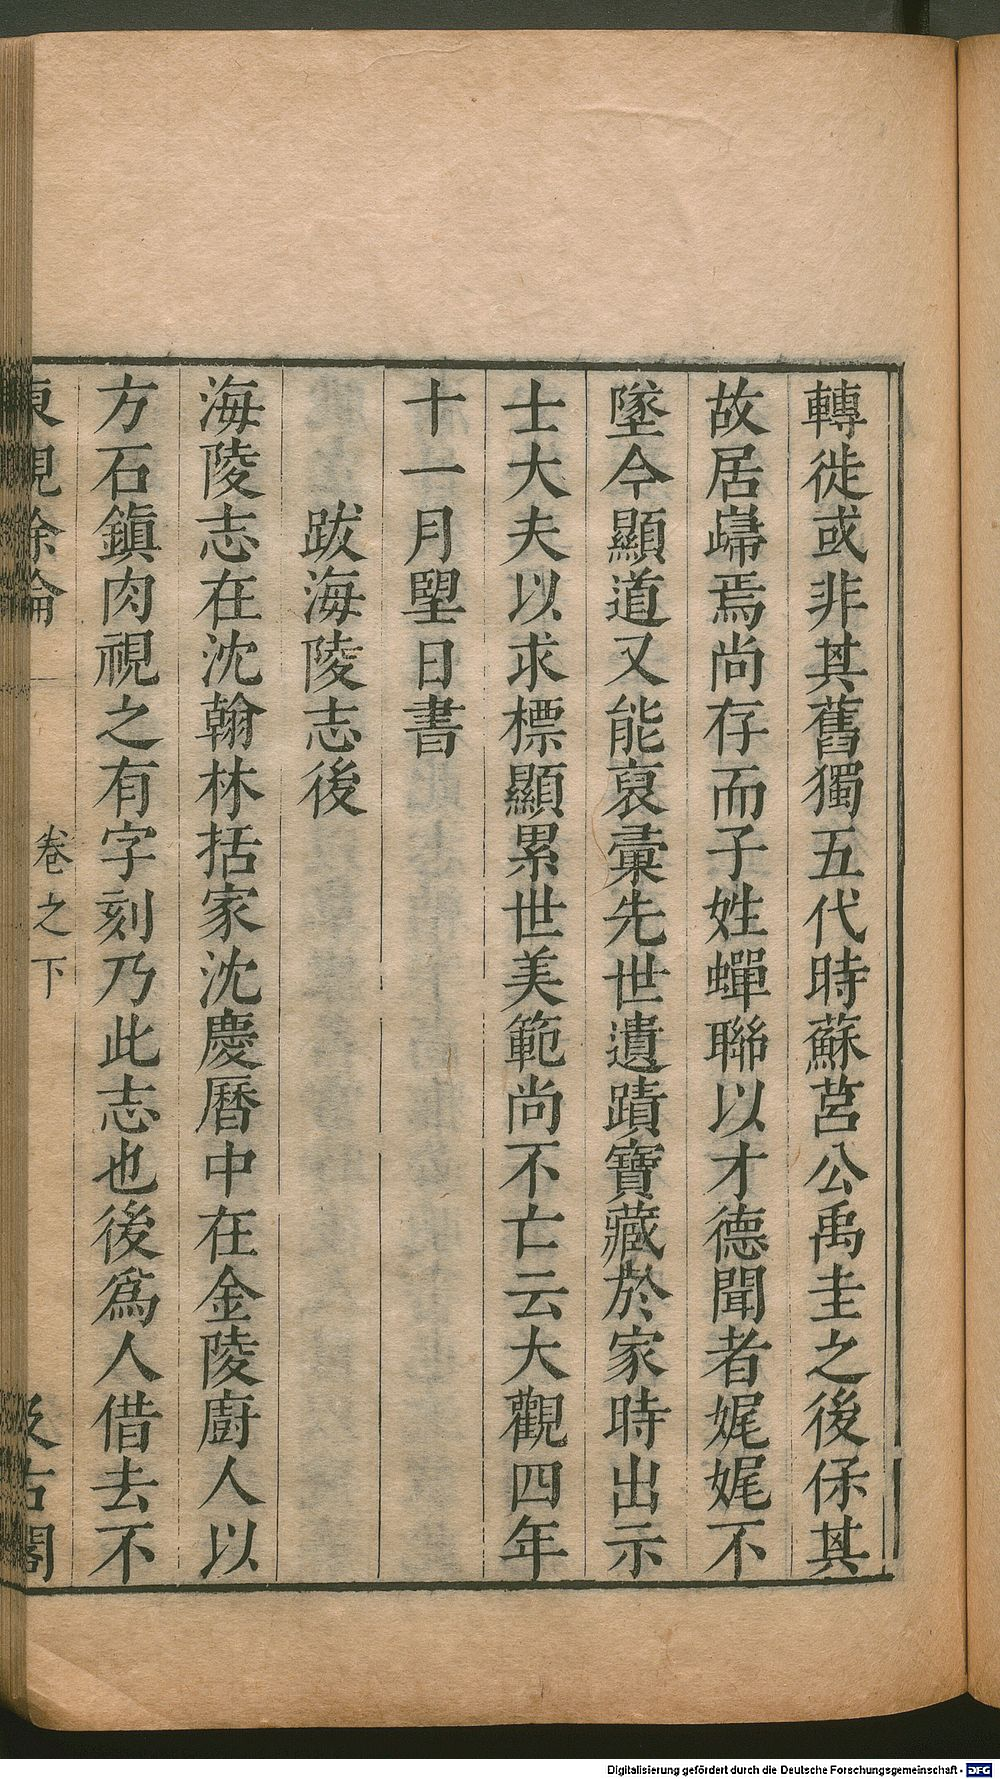 轉徙或非其舊獨五代時蘇莒公禹圭之後保其
故居巋焉尚存而子姓蟬聯以才德聞者娓娓不
墜今顯道又能裒彙先世遺蹟寶藏於家時出示
士大夫以求標顯累世美範尚不亡云大觀四年
十一月朢日書
跋海陵志後
海陵志在沈翰林括家沈慶曆中在金陵廚人以
方石鎮肉視之有字刻乃此志也後爲人借去不
東觀餘論
卷之下
汲古閣
Digitalisierung gefördert durch die Deutsche Forschungsgemeinschaft - DFG